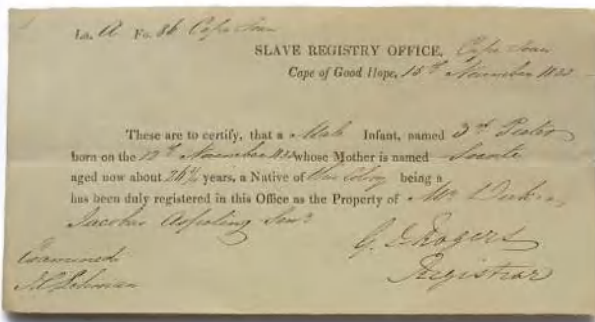 Lo. A Fo. 86 Cape Town
SLAVE REGISTRY OFFICE, Cape Town
Cape of Good Hope, 15th November 1822
These are to certify, that a Male Infant, named 3rd Pedro
born on the 12th November 1822 whose Mother is named
aged now about 26 years, a Native of this Colony being a
has been duly registered in this Office as the Property of Mr
Jacobus Senr
G. Rogers
Registrar
Examined